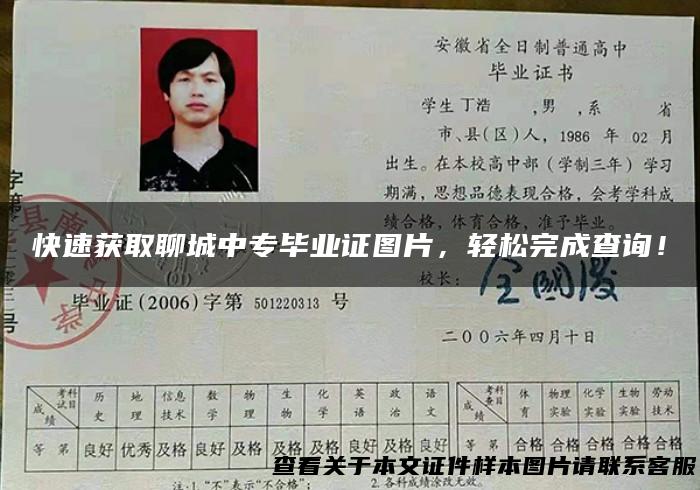 安徽省全日制普通高中
毕业证书
学生 丁浩 ,男 ,系 省
市、县(区)人，1986 年 02 月
出生。在本校高中部（学制三年）学习
期满，思想品德表现合格，会考学科成
绩合格，体育合格，准予毕业。
快速获取聊城中专毕业证图片，轻松完成查询！
校长：
毕业证(2006)字第 501220313 号
二〇〇六年四月十日
成绩 考科试目 历史 地理 信息技术 数学 物理 生物 化学 英语 政治 语文
等第 良好 优秀 及格 良好 及格 及格 及格 良好 及格 良好
成绩 考科查目 体育 物理实验 化学实验 生物实验 劳动技术
等第 合格 合格 合格 合格 合格
查看关于本文证件样本图片请联系客服
注:1."不"表示"不合格"；
2.各科成绩涂改无效。